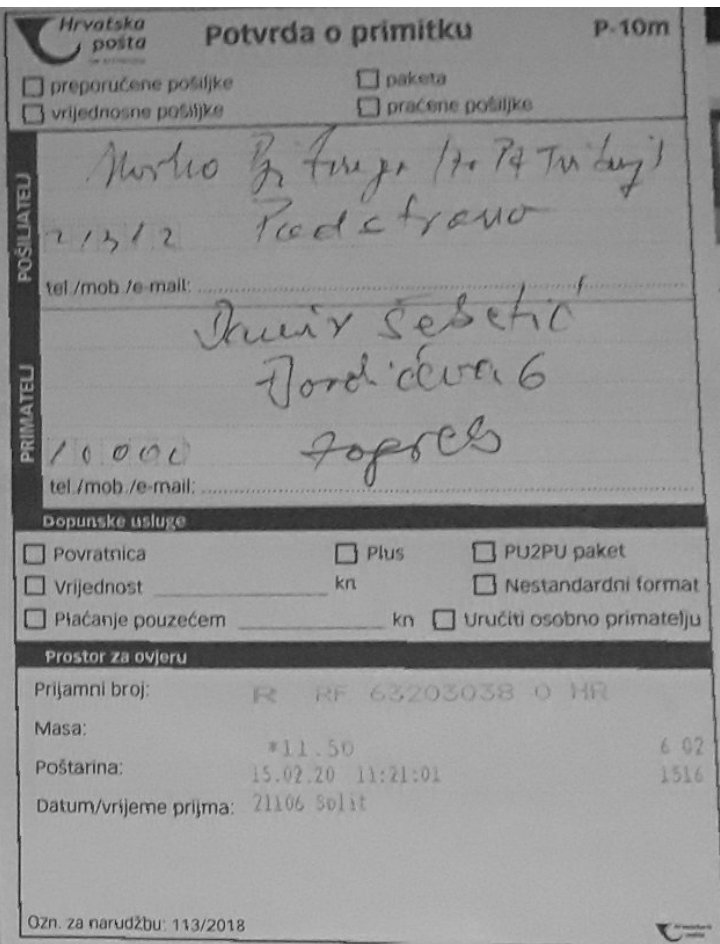 Hrvatska
pošta
Potvrda o primitku
P-10m
preporučene pošiljke
paketa
vrijednosne pošiljke
praćene pošiljke
POŠILJATELJ
21312 Podstrana
tel./mob./e-mail:
PRIMATELJ
Damir Šebetić
Đorđićeva 6
10000 Zagreb
tel./mob./e-mail:
Dopunske usluge
Povratnica
Plus
PU2PU paket
Vrijednost kn
Nestandardni format
Plaćanje pouzećem kn
Uručiti osobno primatelju
Prostor za ovjeru
Prijamni broj: R RF 63203038 0 HR
Masa:
*11.50 6 02
Poštarina: 15.02.20 11:21:01 1516
Datum/vrijeme prijma: 21106 Split
Ozn. za narudžbu: 113/2018